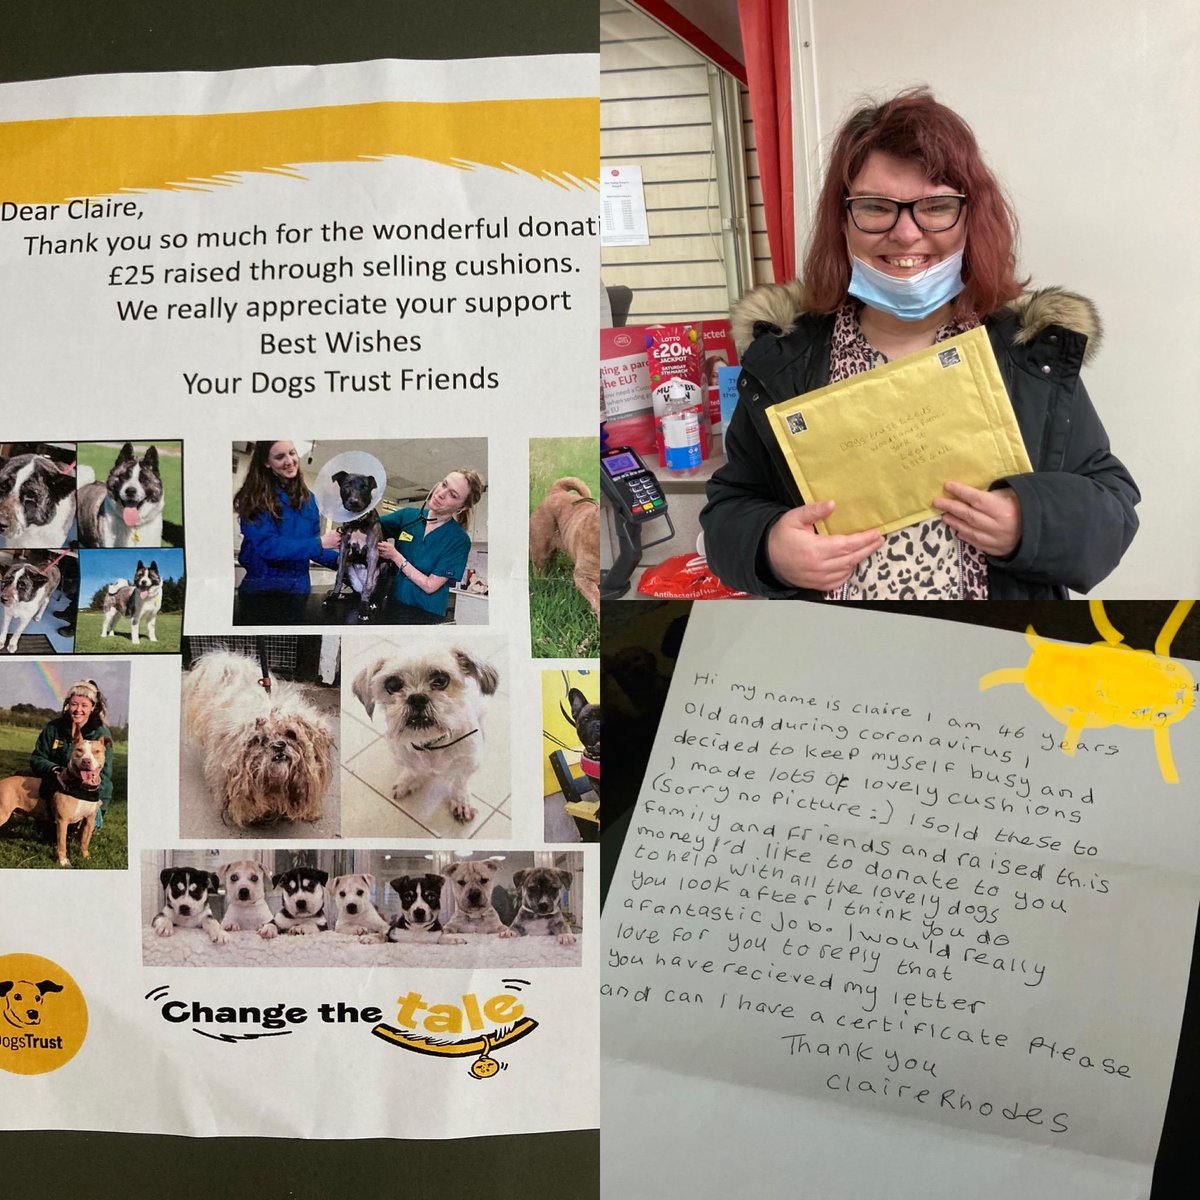 Dear Claire,
Thank you so much for the wonderful donati
£25 raised through selling cushions.
We really appreciate your support
Best Wishes
Your Dogs Trust Friends
Change the tale
DogsTrust
LOTTO
£20M
JACKPOT
SATURDAY
5TH MARCH
MUST BE
WON
ected
the EU?
Antibacterial Ha
Dogs trust Leeds
woodlands Farm
York St
Leeds
Hi my name is claire I am 46 years
old and during coronavirus I
decided to keep myself busy and
I made lots of lovely cushions
(Sorry no picture :) I sold these to
family and friends and raised this
money I'd like to donate to you
to help with all the lovely dogs
you look after I think you do
a fantastic job. I would really
love for you to reply that
you have recieved my letter
and can I have a certificate Please
Thank you
Claire Rhodes